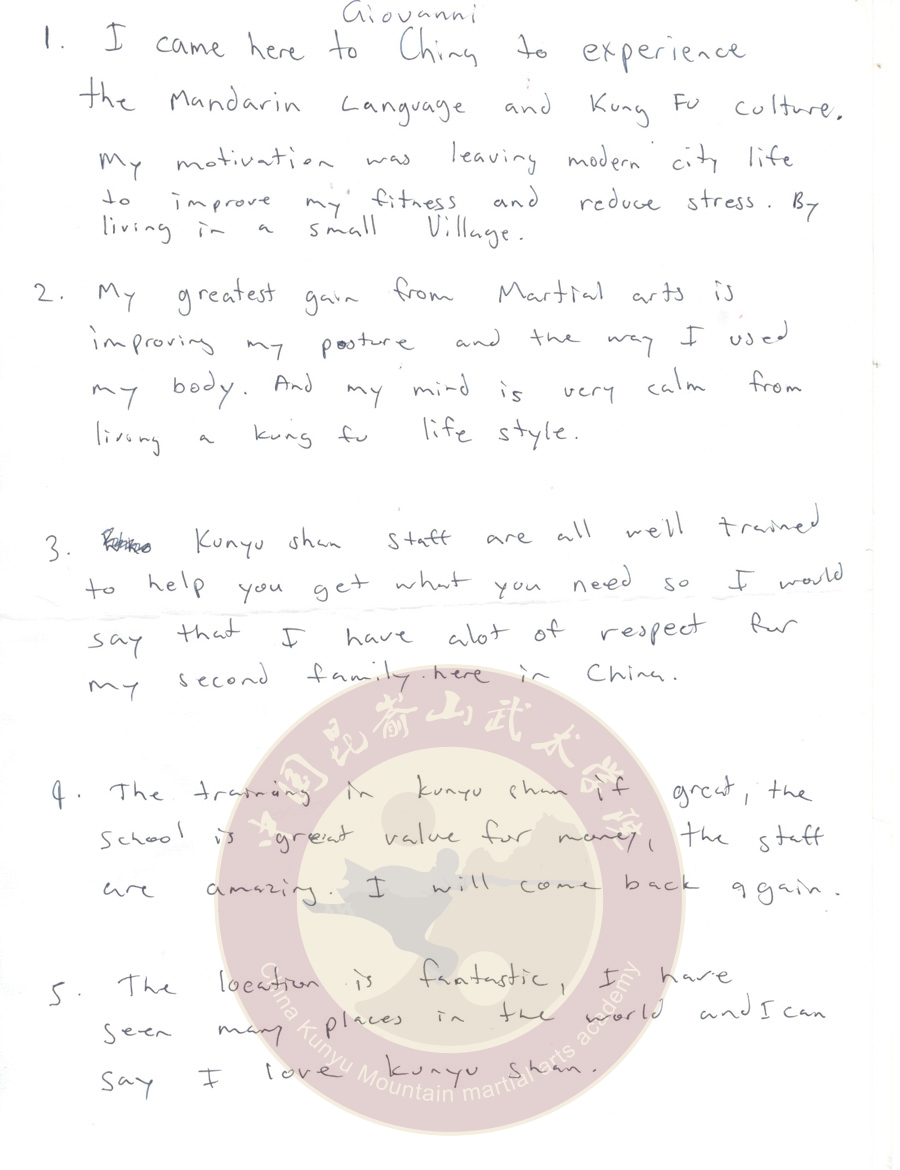 Giovanni
1. I came here to China to experience
the Mandarin Language and Kung Fu culture.
My motivation was leaving modern city life
to improve my fitness and reduce stress. By
living in a small Village.
2. My greatest gain from Martial arts is
improving my posture and the way I used
my body. And my mind is very calm from
living a kung fu life style.
3. Kunyu shan staff are all well trained
to help you get what you need so I would
say that I have alot of respect for
my second family here in China.
中国昆嵛山武术学院
4. The training in kunyu shan if great, the
school is great value for money, the staff
are amazing. I will come back again.
5. The location is fantastic, I have
seen many places in the world and I can
say I love kunyu shan.
China Kunyu Mountain martial arts academy